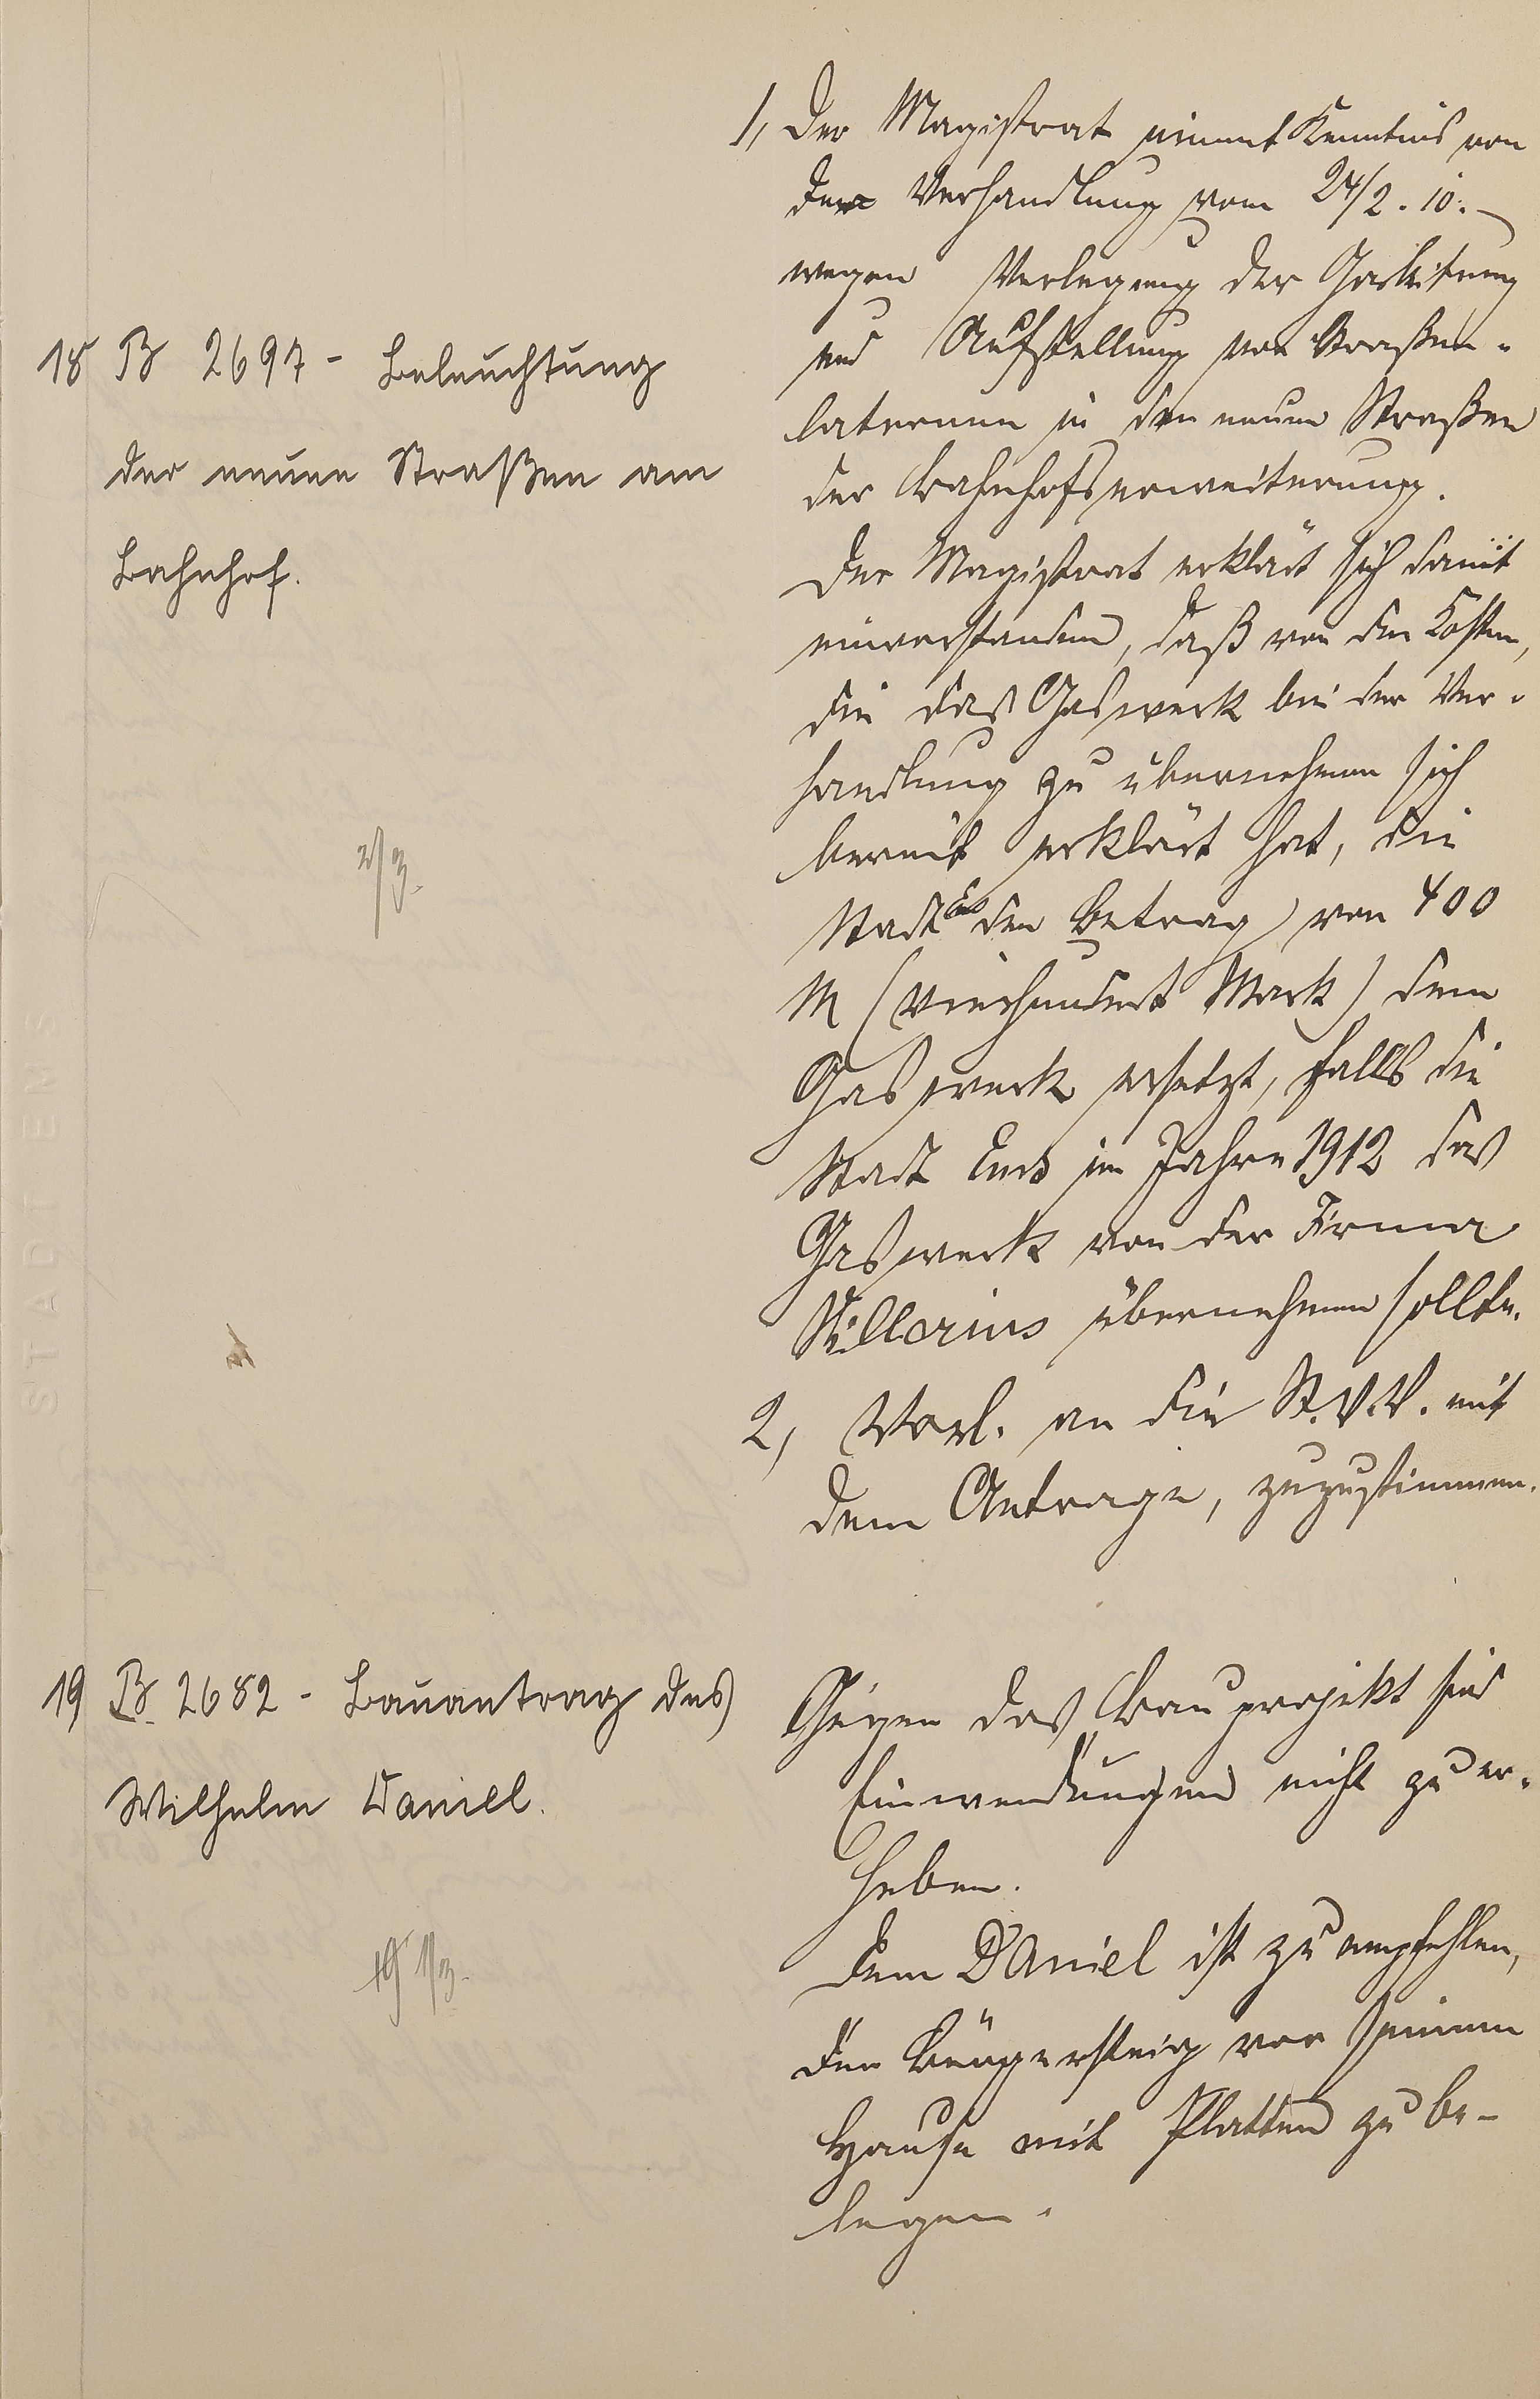 18 B 2697 - Beleuchtung
der neuen Straßen am
Bahnhof.
2/3.
1, Der Magistrat nimmt Kenntnis von
der Verhandlung vom 24/2. 10. -
wegen Verlegung der Gasleitung
und Aufstellung von Straßen-
laternen in den neuen Straßen
der Bahnhofserweiterung.
Der Magistrat erklärt sich damit
einverstanden, daß von den Kosten,
die das Gaswerk bei der Ver-
handlung zu übernehmen sich
bereit erklärt hat, die
Stadt Ems den Betrag von 400
M (vierhundert Mark) dem
Gaswerk ersetzt, falls die
Stadt Ems im Jahre 1912 das
Gaswerk von der Firma
übernehmen sollte.
2, Vorl. an die St.V.V. mit
dem Antrage, zuzustimmen.
19 B. 2682 - Bauantrag des
Wilhelm Daniel.
19 1/3.
Gegen das Bauprojekt sind
Einwendungen nicht zu er-
heben.
Dem Daniel ist zu empfehlen,
den Bürgersteig vor seinem
Hause mit Platten zu be-
legen.
STADT EMS